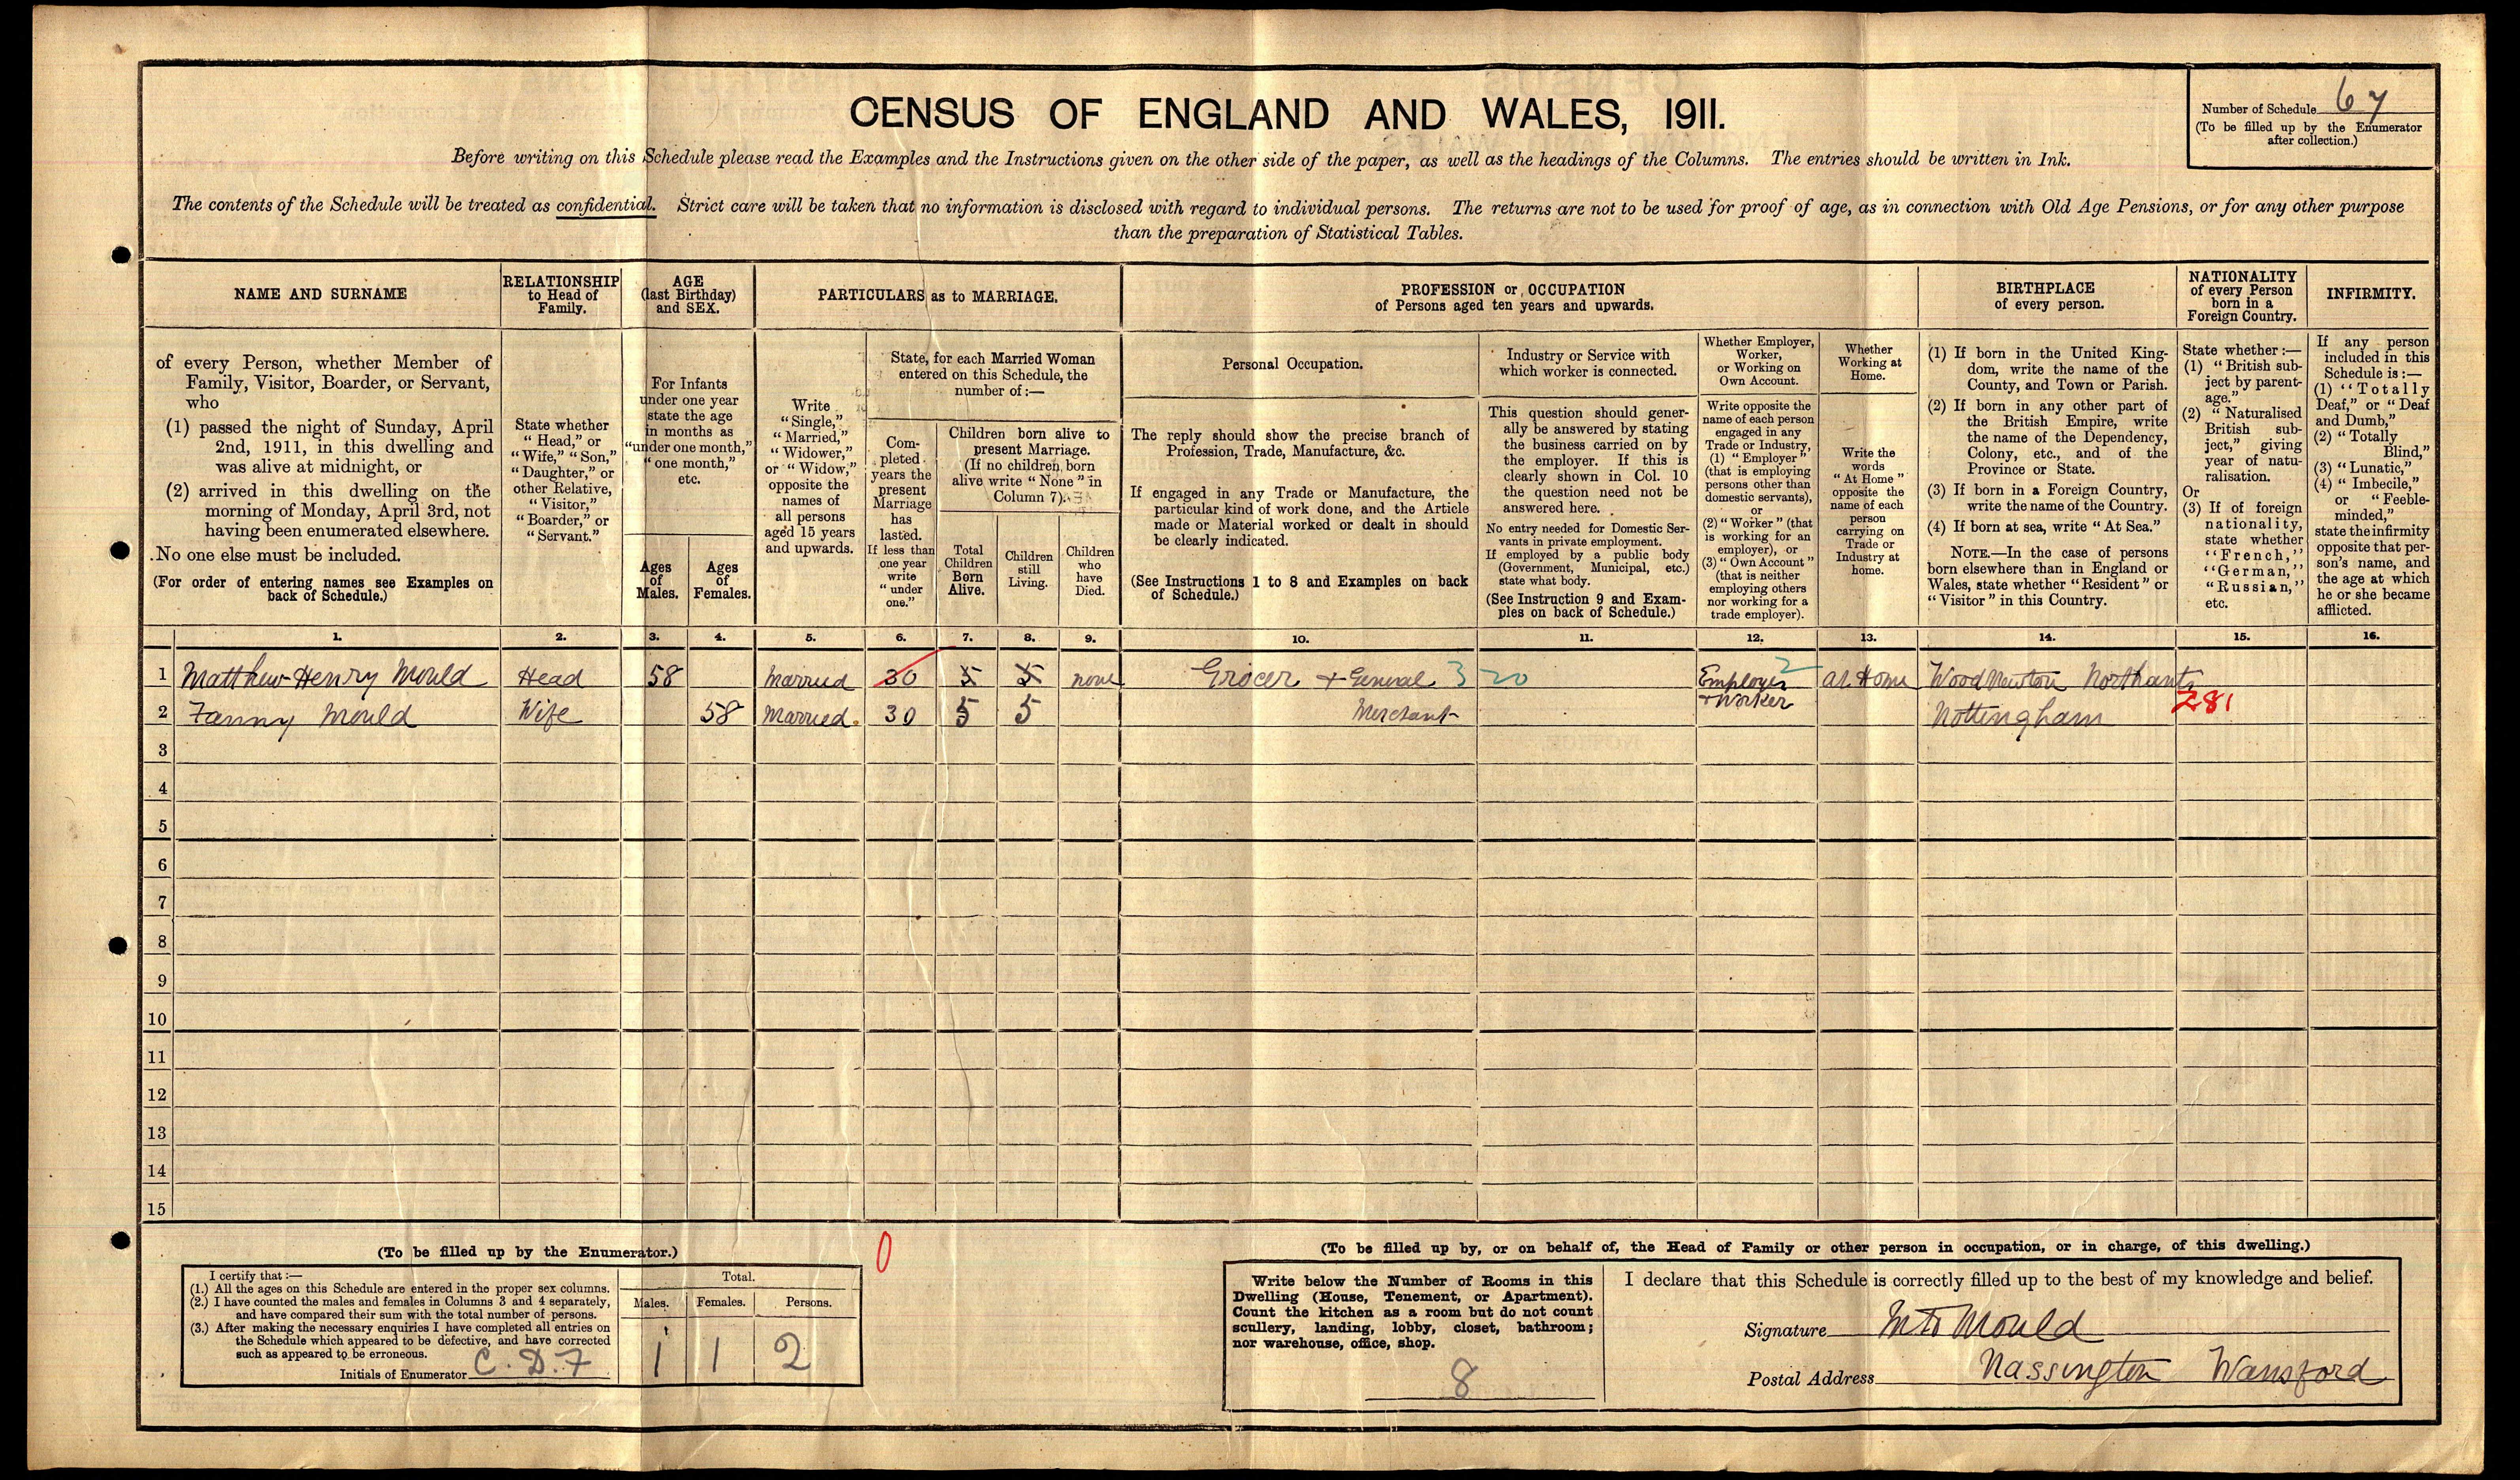 CENSUS OF ENGLAND AND WALES, 1911.
Number of Schedule 67
(To be filled up by the Enumerator
after collection.)
Before writing on this Schedule please read the Examples and the Instructions given on the other side of the paper, as well as the headings of the Columns. The entries should be written in Ink.
The contents of the Schedule will be treated as confidential. Strict care will be taken that no information is disclosed with regard to individual persons. The returns are not to be used for proof of age, as in connection with Old Age Pensions, or for any other purpose
than the preparation of Statistical Tables.
NAME AND SURNAME
of every Person, whether Member of
Family, Visitor, Boarder, or Servant,
who
(1) passed the night of Sunday, April
2nd, 1911, in this dwelling and
was alive at midnight, or
(2) arrived in this dwelling on the
morning of Monday, April 3rd, not
having been enumerated elsewhere.
No one else must be included.
(For order of entering names see Examples on
back of Schedule.)
RELATIONSHIP
to Head of
Family.
State whether
"Head," or
"Wife," "Son,"
"Daughter," or
other Relative,
"Visitor,"
"Boarder," or
"Servant."
AGE
(last Birthday)
and SEX.
For Infants
under one year
state the age
in months as
"under one month,"
"one month,"
etc.
Ages
of
Males.
Ages
of
Females.
PARTICULARS as to MARRIAGE.
Write
"Single,"
"Married,"
"Widower,"
or "Widow,"
opposite the
names of
all persons
aged 15 years
and upwards.
State, for each Married Woman
entered on this Schedule, the
number of:—
Com-
pleted
years the
present
Marriage
has
lasted.
If less than
one year
write
"under
one."
Children born alive to
present Marriage.
(If no children born
alive write "None" in
Column 7).
Total
Children
Born
Alive.
Children
still
Living.
Children
who
have
Died.
PROFESSION or OCCUPATION
of Persons aged ten years and upwards.
Personal Occupation.
The reply should show the precise branch of
Profession, Trade, Manufacture, &c.
If engaged in any Trade or Manufacture, the
particular kind of work done, and the Article
made or Material worked or dealt in should
be clearly indicated.
(See Instructions 1 to 8 and Examples on back
of Schedule.)
Industry or Service with
which worker is connected.
This question should gener-
ally be answered by stating
the business carried on by
the employer. If this is
clearly shown in Col. 10
the question need not be
answered here.
No entry needed for Domestic Ser-
vants in private employment.
If employed by a public body
(Government, Municipal, etc.)
state what body.
(See Instruction 9 and Exam-
ples on back of Schedule.)
Whether Employer,
Worker,
or Working on
Own Account.
Write opposite the
name of each person
engaged in any
Trade or Industry,
(1) "Employer"
(that is employing
persons other than
domestic servants),
or
(2) "Worker" (that
is working for an
employer), or
(3) "Own Account"
(that is neither
employing others
nor working for a
trade employer).
Whether
Working at
Home.
Write the
words
"At Home"
opposite the
name of each
person
carrying on
Trade or
Industry at
home.
BIRTHPLACE
of every person.
(1) If born in the United King-
dom, write the name of the
County, and Town or Parish.
(2) If born in any other part of
the British Empire, write
the name of the Dependency,
Colony, etc., and of the
Province or State.
(3) If born in a Foreign Country,
write the name of the Country.
(4) If born at sea, write "At Sea."
NOTE.—In the case of persons
born elsewhere than in England or
Wales, state whether "Resident" or
"Visitor" in this Country.
NATIONALITY
of every Person
born in a
Foreign Country.
State whether:—
(1) "British sub-
ject by parent-
age."
(2) "Naturalised
British sub-
ject," giving
year of natu-
ralisation.
Or
(3) If of foreign
nationality,
state whether
"French,"
"German,"
"Russian,"
etc.
INFIRMITY.
If any person
included in this
Schedule is:—
(1) "Totally
Deaf," or "Deaf
and Dumb,"
(2) "Totally
Blind,"
(3) "Lunatic,"
(4) "Imbecile,"
or "Feeble-
minded,"
state the infirmity
opposite that per-
son's name, and
the age at which
he or she became
afflicted.
1. 2. 3. 4. 5. 6. 7. 8. 9. 10. 11. 12. 13. 14. 15. 16.
1 Matthew Henry Mould Head 58 Married 30 5 5 none Grocer + General 320 Employer 2 At Home WoodNewton Northants
2 Fanny Mould Wife 58 Married. 30 5 5 Merchant + Worker Nottingham 281
3
4
5
6
7
8
9
10
11
12
13
14
15
(To be filled up by the Enumerator.)
I certify that:—
(1.) All the ages on this Schedule are entered in the proper sex columns.
(2.) I have counted the males and females in Columns 3 and 4 separately,
and have compared their sum with the total number of persons.
(3.) After making the necessary enquiries I have completed all entries on
the Schedule which appeared to be defective, and have corrected
such as appeared to be erroneous.
Initials of Enumerator C. D. F
Total.
Males. Females. Persons.
1 1 2
0
(To be filled up by, or on behalf of, the Head of Family or other person in occupation, or in charge, of this dwelling.)
Write below the Number of Rooms in this
Dwelling (House, Tenement, or Apartment).
Count the kitchen as a room but do not count
scullery, landing, lobby, closet, bathroom;
nor warehouse, office, shop.
8
I declare that this Schedule is correctly filled up to the best of my knowledge and belief.
Signature MH Mould
Postal Address Nassington Wansford